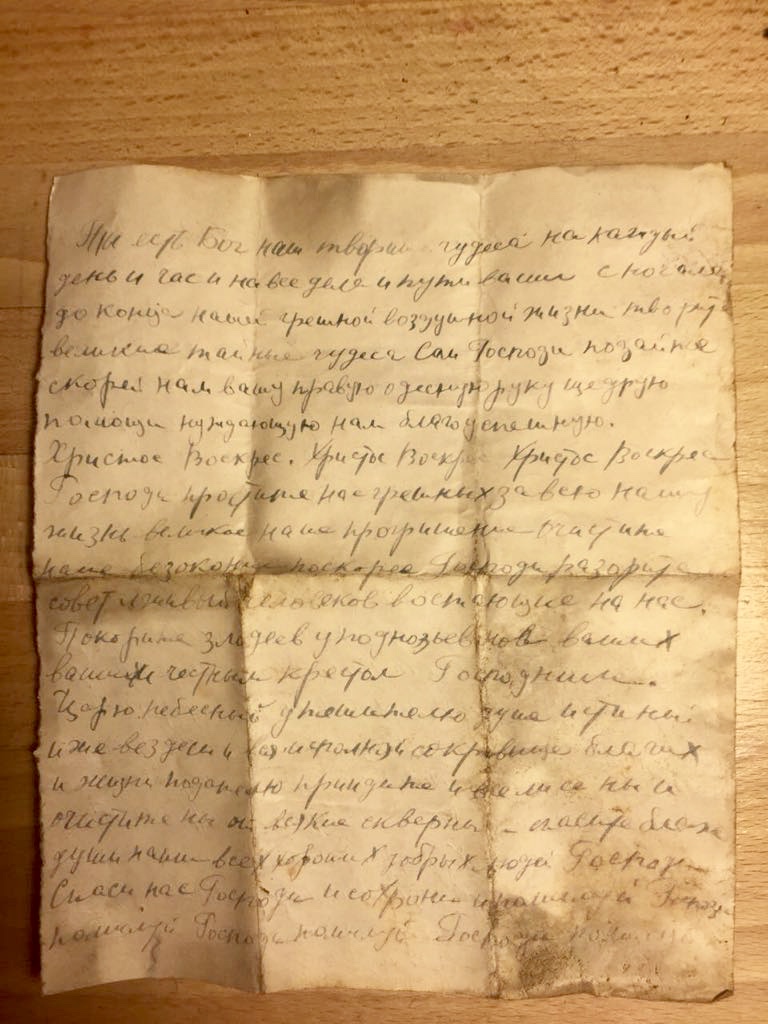 Ты есть Бог наш творит чудеса на каждый
день и час и на все дела и пути ваши с начала
до конца нашей грешной воздушной жизни творите
великие тайные чудеса Сам Господи подайте
скорей нам вашу правую одесную руку щедрую
помощи нуждающую нам благоуспешную.
Христос Воскрес. Христос Воскрес Христос Воскрес
Господи простите нас грешных за всю нашу
жизнь великое наше прогришение очистите
наше безоконие поскорее Господи разорите
совет лживый человеков востающие на нас.
Покорите злодеев у подножье ваших
вашим честным крестом Господним.
Царю небесный утешителю душе истины
иже везде и вся исполняй сокровище благих
и жизни подателю приидите и вселисе ны и
очистите ны от всякие скверны спасите блаже
души наши всех хороших добрых людей Господи
Спаси нас Господи и сохрани и помилуй Господи
помилуй Господи помилуй Господи помилуй